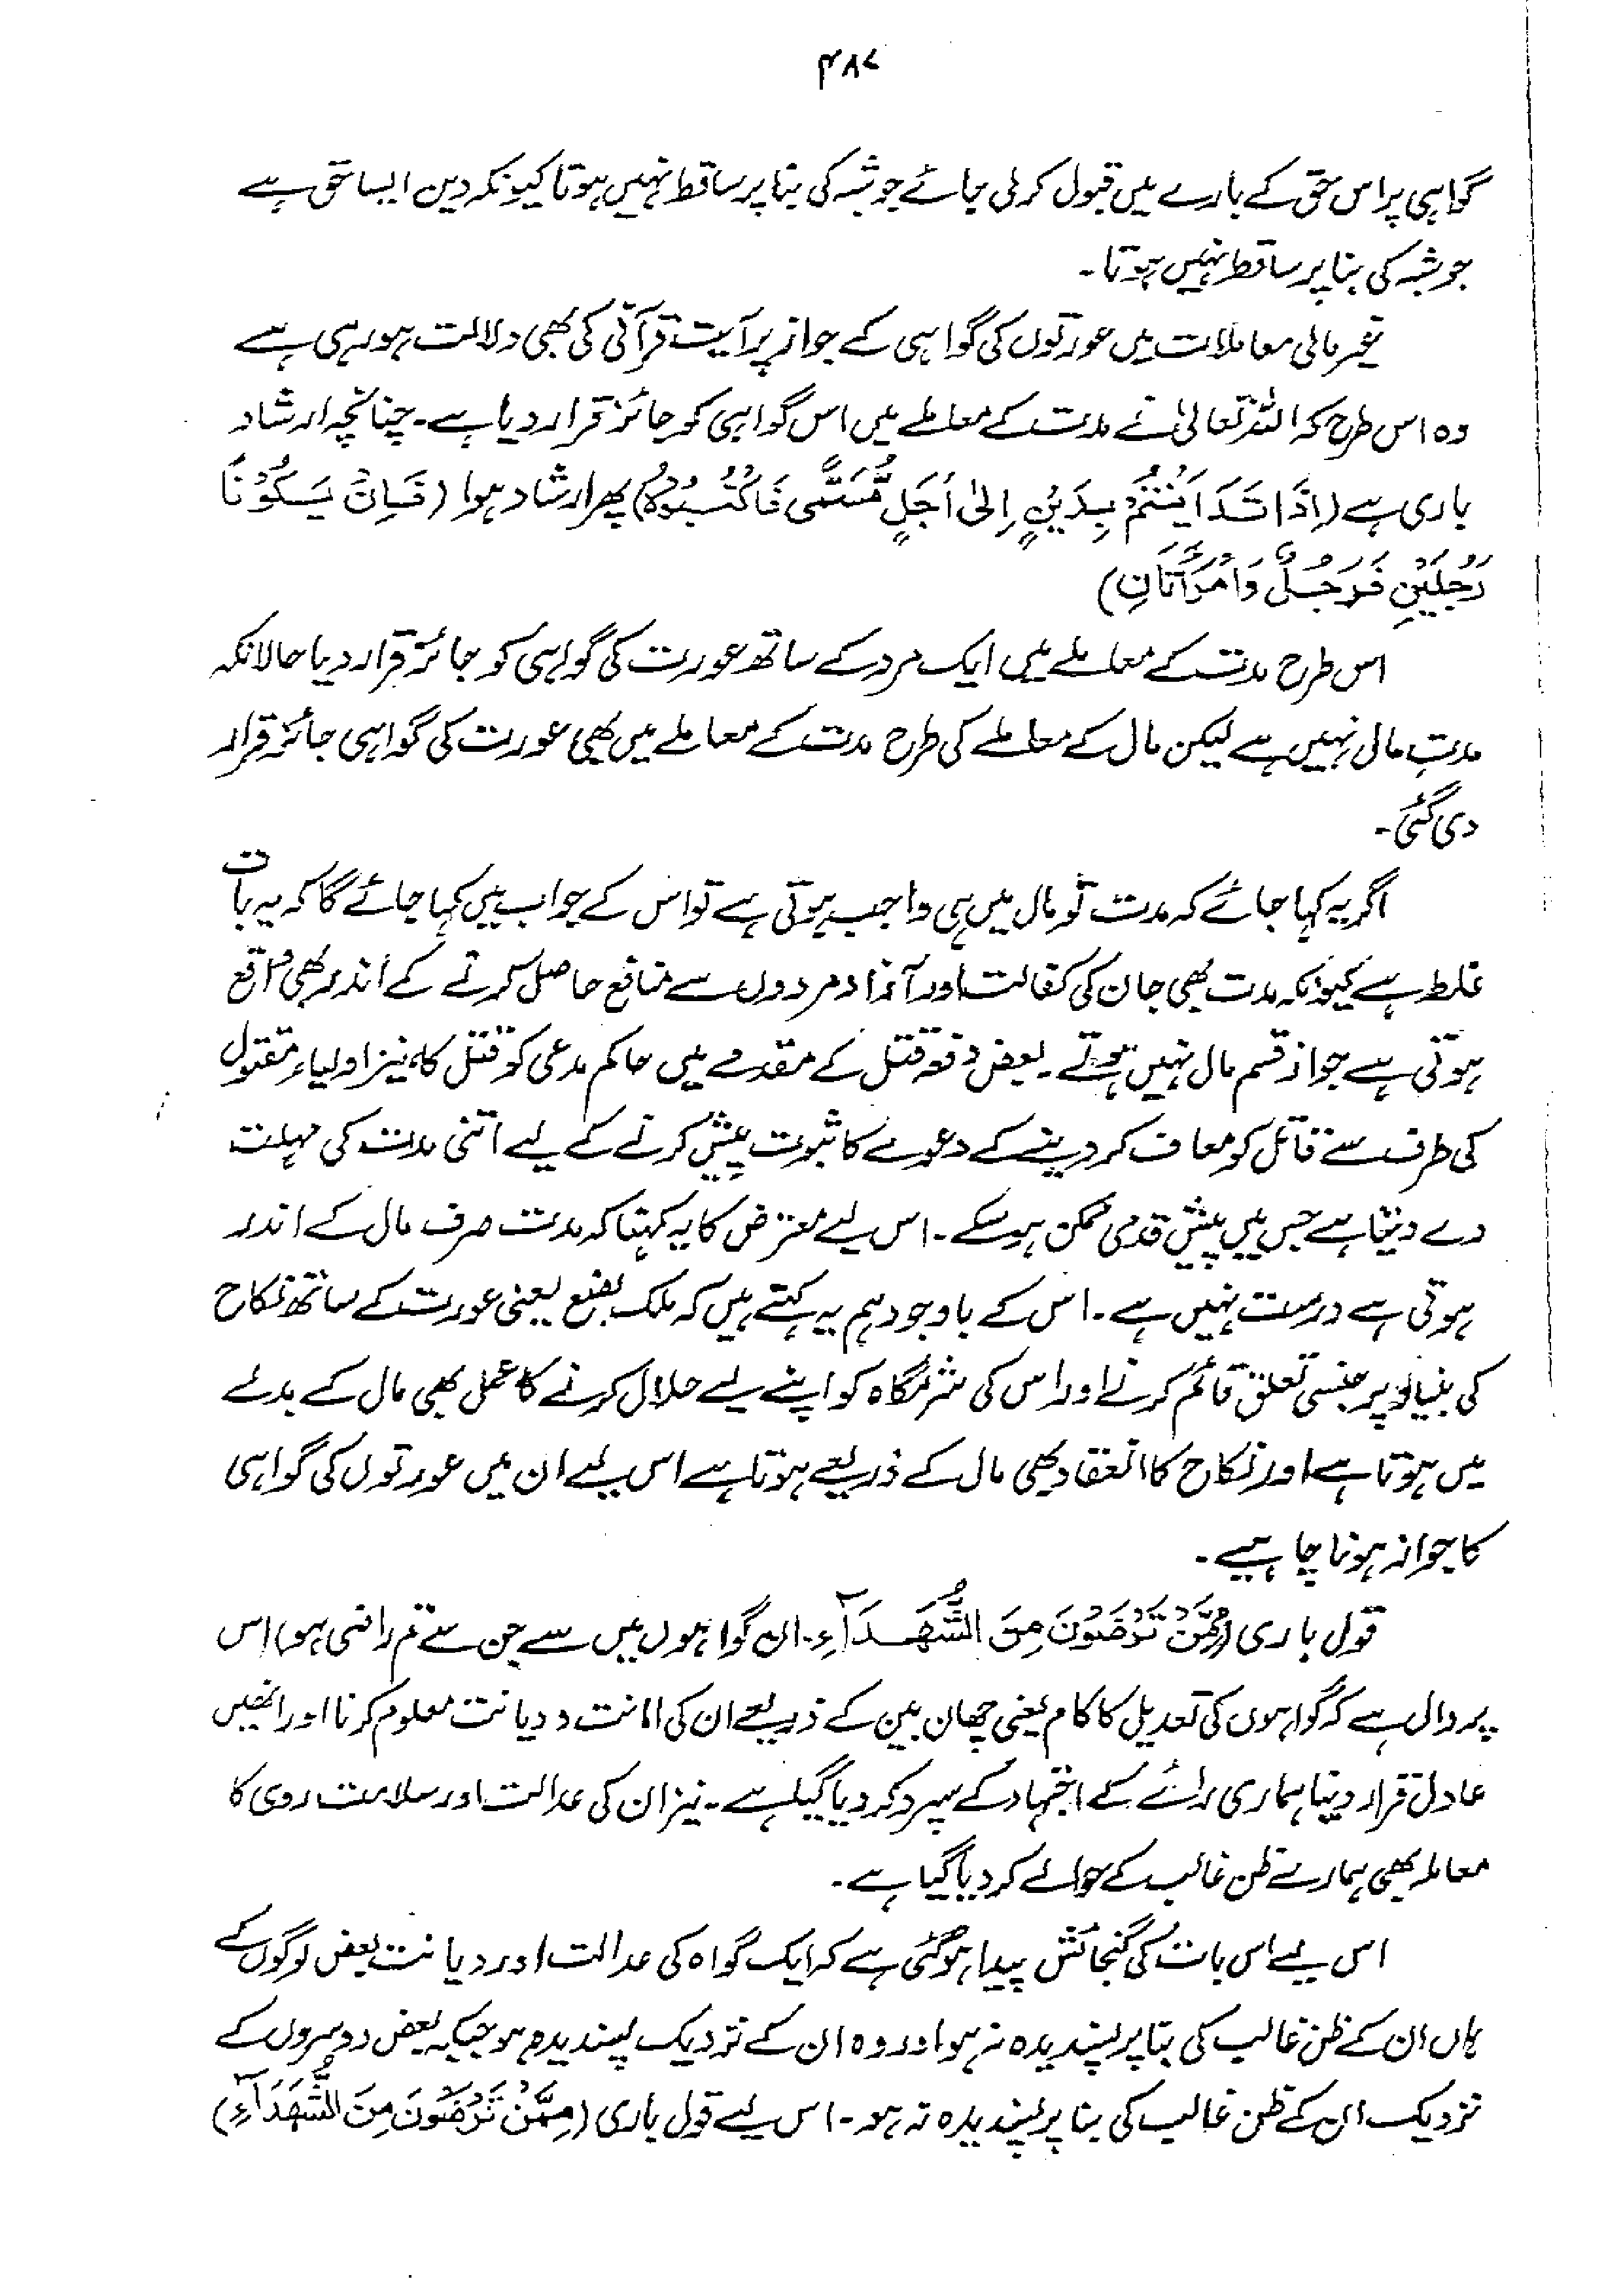 ۴۸۷
گواہی پر اس حق کے بارے میں قبول کرلی جائے جو شبہ کی بنا پر ساقط نہیں ہوتا کیونکہ دین ایسا حق ہے
جو شبہ کی بنا پر ساقط نہیں ہوتا۔
غیر مالی معاملات میں عورتوں کی گواہی کے جواز پر آیت قرآنی کی بھی دلالت ہو رہی ہے
وہ اس طرح کہ اللہ تعالیٰ نے مدت کے معاملے میں اس گواہی کو جائز قرار دیا ہے۔ چنانچہ ارشاد
باری ہے (اِذَا تَدَایَنْتُمْ بِدَیْنٍ اِلیٰ اَجَلٍ مُّسَمًّی فَاکْتُبُوْہُ) پھر ارشاد ہوا (فَاِنْ یَکُوْنَا
رَجُلَیْنِ فَرَجُلٌ وَامْرَأَتَانِ)
اس طرح مدت کے معاملے میں ایک مرد کے ساتھ عورت کی گواہی کو جائز قرار دیا حالانکہ
مدت مال نہیں ہے لیکن مال کے معاملے کی طرح مدت کے معاملے میں بھی عورت کی گواہی جائز قرار
دی گئی۔
اگر یہ کہا جائے کہ مدت تو مال میں ہی واجب ہوتی ہے تو اس کے جواب میں کہا جائے گا کہ یہ بات
غلط ہے کیونکہ مدت بھی جان کی کفالت اور آزاد مردوں سے منافع حاصل کرنے کے اندر بھی واقع
ہوتی ہے جو از قسم مال نہیں ہوتے۔ بعض دفعہ قتل کے مقدمے میں حاکم مدعی کو قتل کا، نیز اولیاء مقتول
کی طرف سے قاتل کو معاف کر دینے کے دعوے کا ثبوت پیش کرنے کے لیے اتنی مدت کی مہلت
دے دیتا ہے جس میں پیش قدمی ممکن ہو سکے۔ اس لیے معترض کا یہ کہنا کہ مدت صرف مال کے اندر
ہوتی ہے درست نہیں ہے۔ اس کے باوجود ہم یہ کہتے ہیں کہ ملک بضع یعنی عورت کے ساتھ نکاح
کی بنیاد پر جنسی تعلق قائم کرنے اور اس کی شرمگاہ کو اپنے لیے حلال کرنے کا عمل بھی مال کے بدلے
میں ہوتا ہے اور نکاح کا انعقاد بھی مال کے ذریعے ہوتا ہے اس لیے ان میں عورتوں کی گواہی
کا جواز ہونا چاہیے۔
قول باری (مِمَّنْ تَرْضَوْنَ مِنَ الشُّھَدَآءِ۔ ان گواہوں میں سے جن سے تم راضی ہو) اس
پر دال ہے کہ گواہوں کی تعدیل کا کام یعنی چھان بین کے ذریعے ان کی امانت و دیانت معلوم کرنا اور انھیں
عادل قرار دینا ہماری رائے کے اجتہاد کے سپرد کر دیا گیا ہے۔ نیز ان کی عدالت اور سلامت روی کا
معاملہ بھی ہمارے ظن غالب کے حوالے کر دیا گیا ہے۔
اس لیے اس بات کی گنجائش پیدا ہو گئی ہے کہ ایک گواہ کی عدالت اور دیانت بعض لوگوں کے
ہاں ان کے ظن غالب کی بنا پر پسندیدہ نہ ہو اور وہ ان کے نزدیک پسندیدہ ہو جبکہ بعض دوسروں کے
نزدیک ان کے ظن غالب کی بنا پر پسندیدہ نہ ہو۔ اس لیے قول باری (مِمَّنْ تَرْضَوْنَ مِنَ الشُّھَدَآءِ)